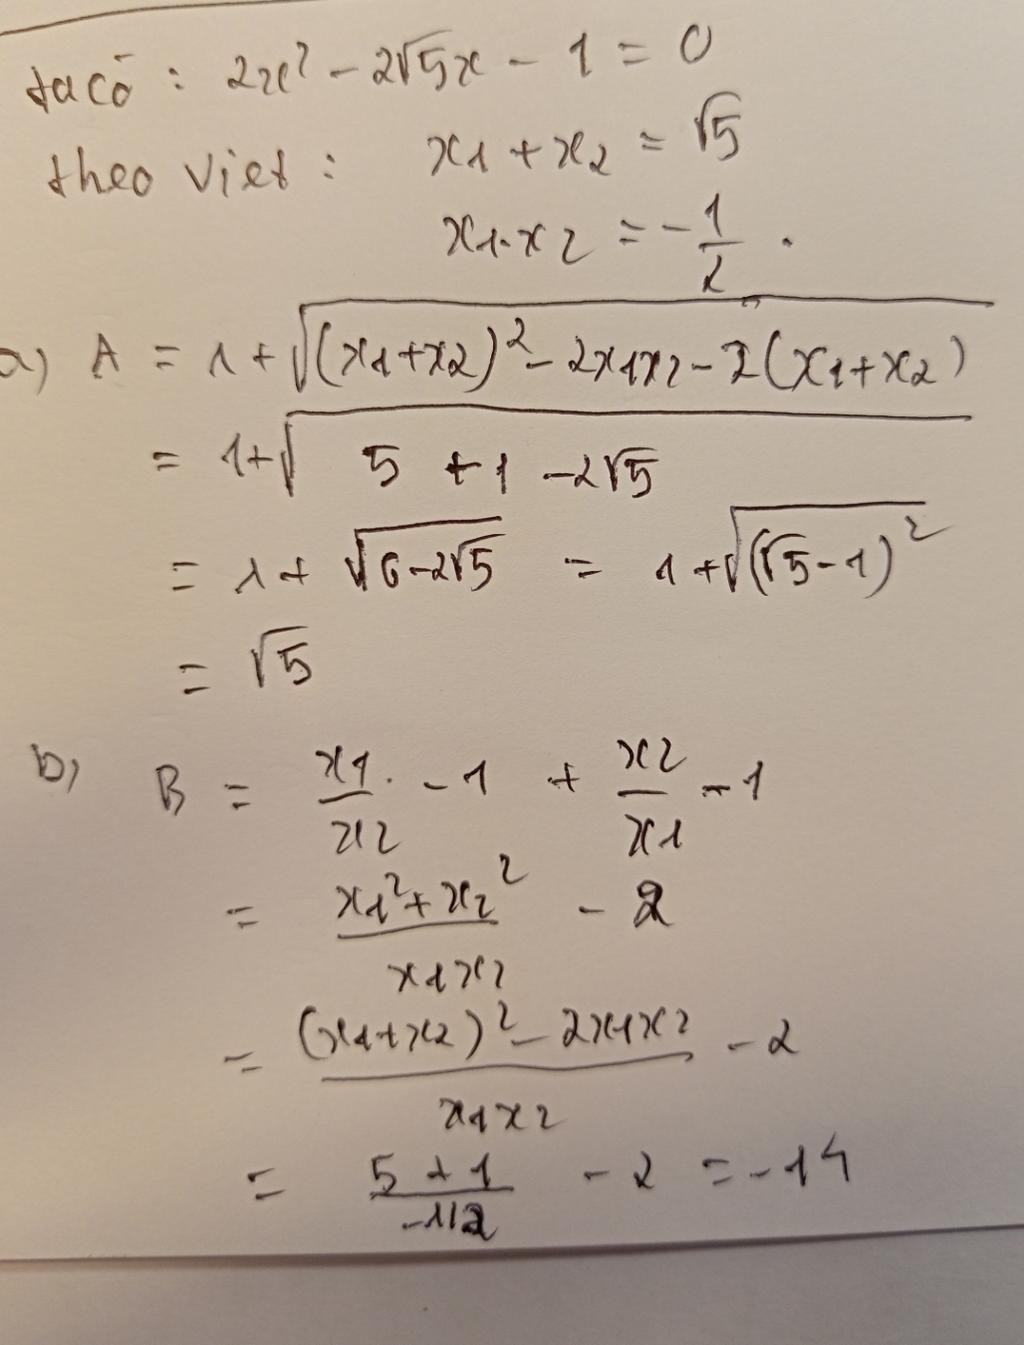 ta có : 2x² - 2√5x - 1 = 0
theo viet : x1 + x2 = √5
x1.x2 = -1/2 .
a) A = 1 + √((x1+x2)² - 2x1x2 - 2(x1+x2))
= 1+√(5 + 1 - 2√5)
= 1 + √(6-2√5) = 1 + √((√5-1)²)
= √5
b) B = x1/x2 - 1 + x2/x1 - 1
= (x1² + x2²)/(x1x2) - 2
= ((x1+x2)² - 2x1x2)/(x1x2) - 2
= (5 + 1)/(-1/2) - 2 = -14